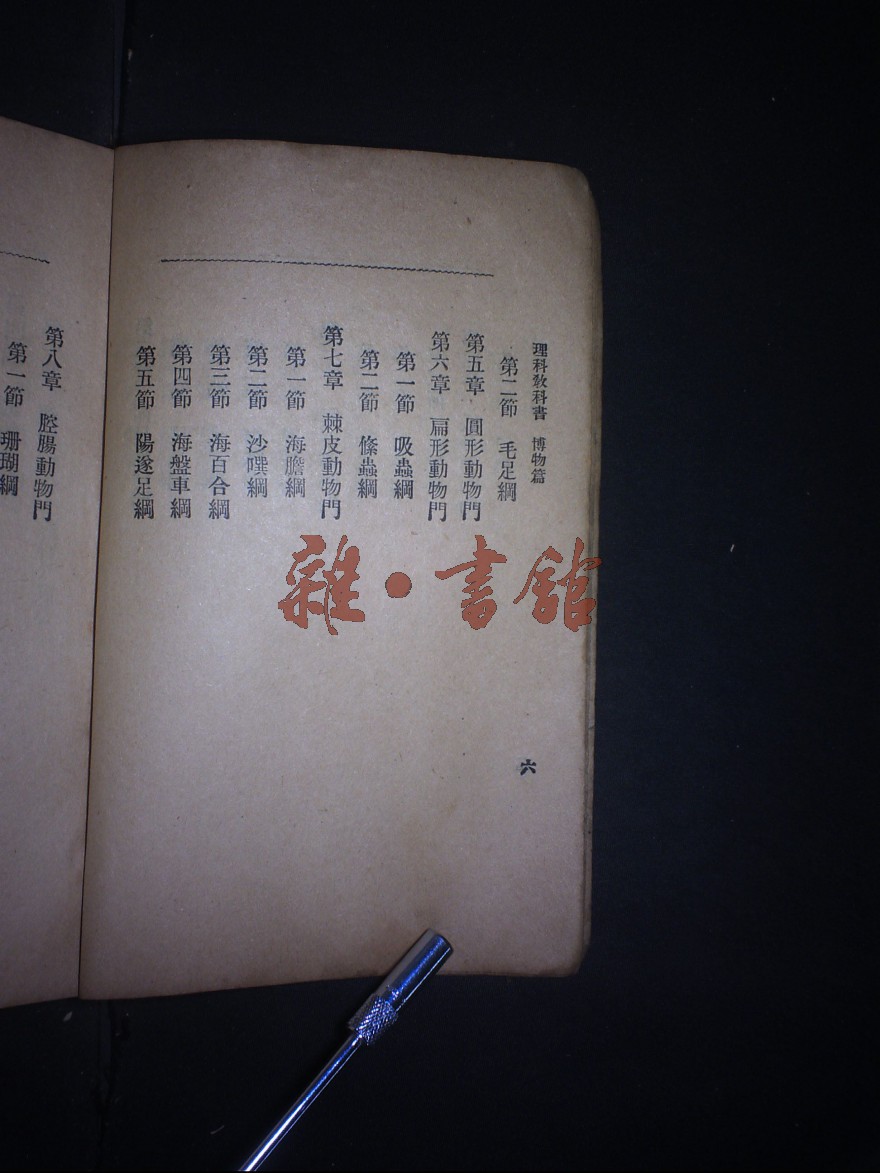 理科教科書 博物篇
第二節 毛足綱
第五章 圓形動物門
第六章 扁形動物門
第一節 吸蟲綱
第二節 絛蟲綱
第七章 棘皮動物門
第一節 海膽綱
第二節 沙噀綱
第三節 海百合綱
第四節 海盤車綱
第五節 陽遂足綱
六
第八章 腔腸動物門
第一節 珊瑚綱
雜·書館